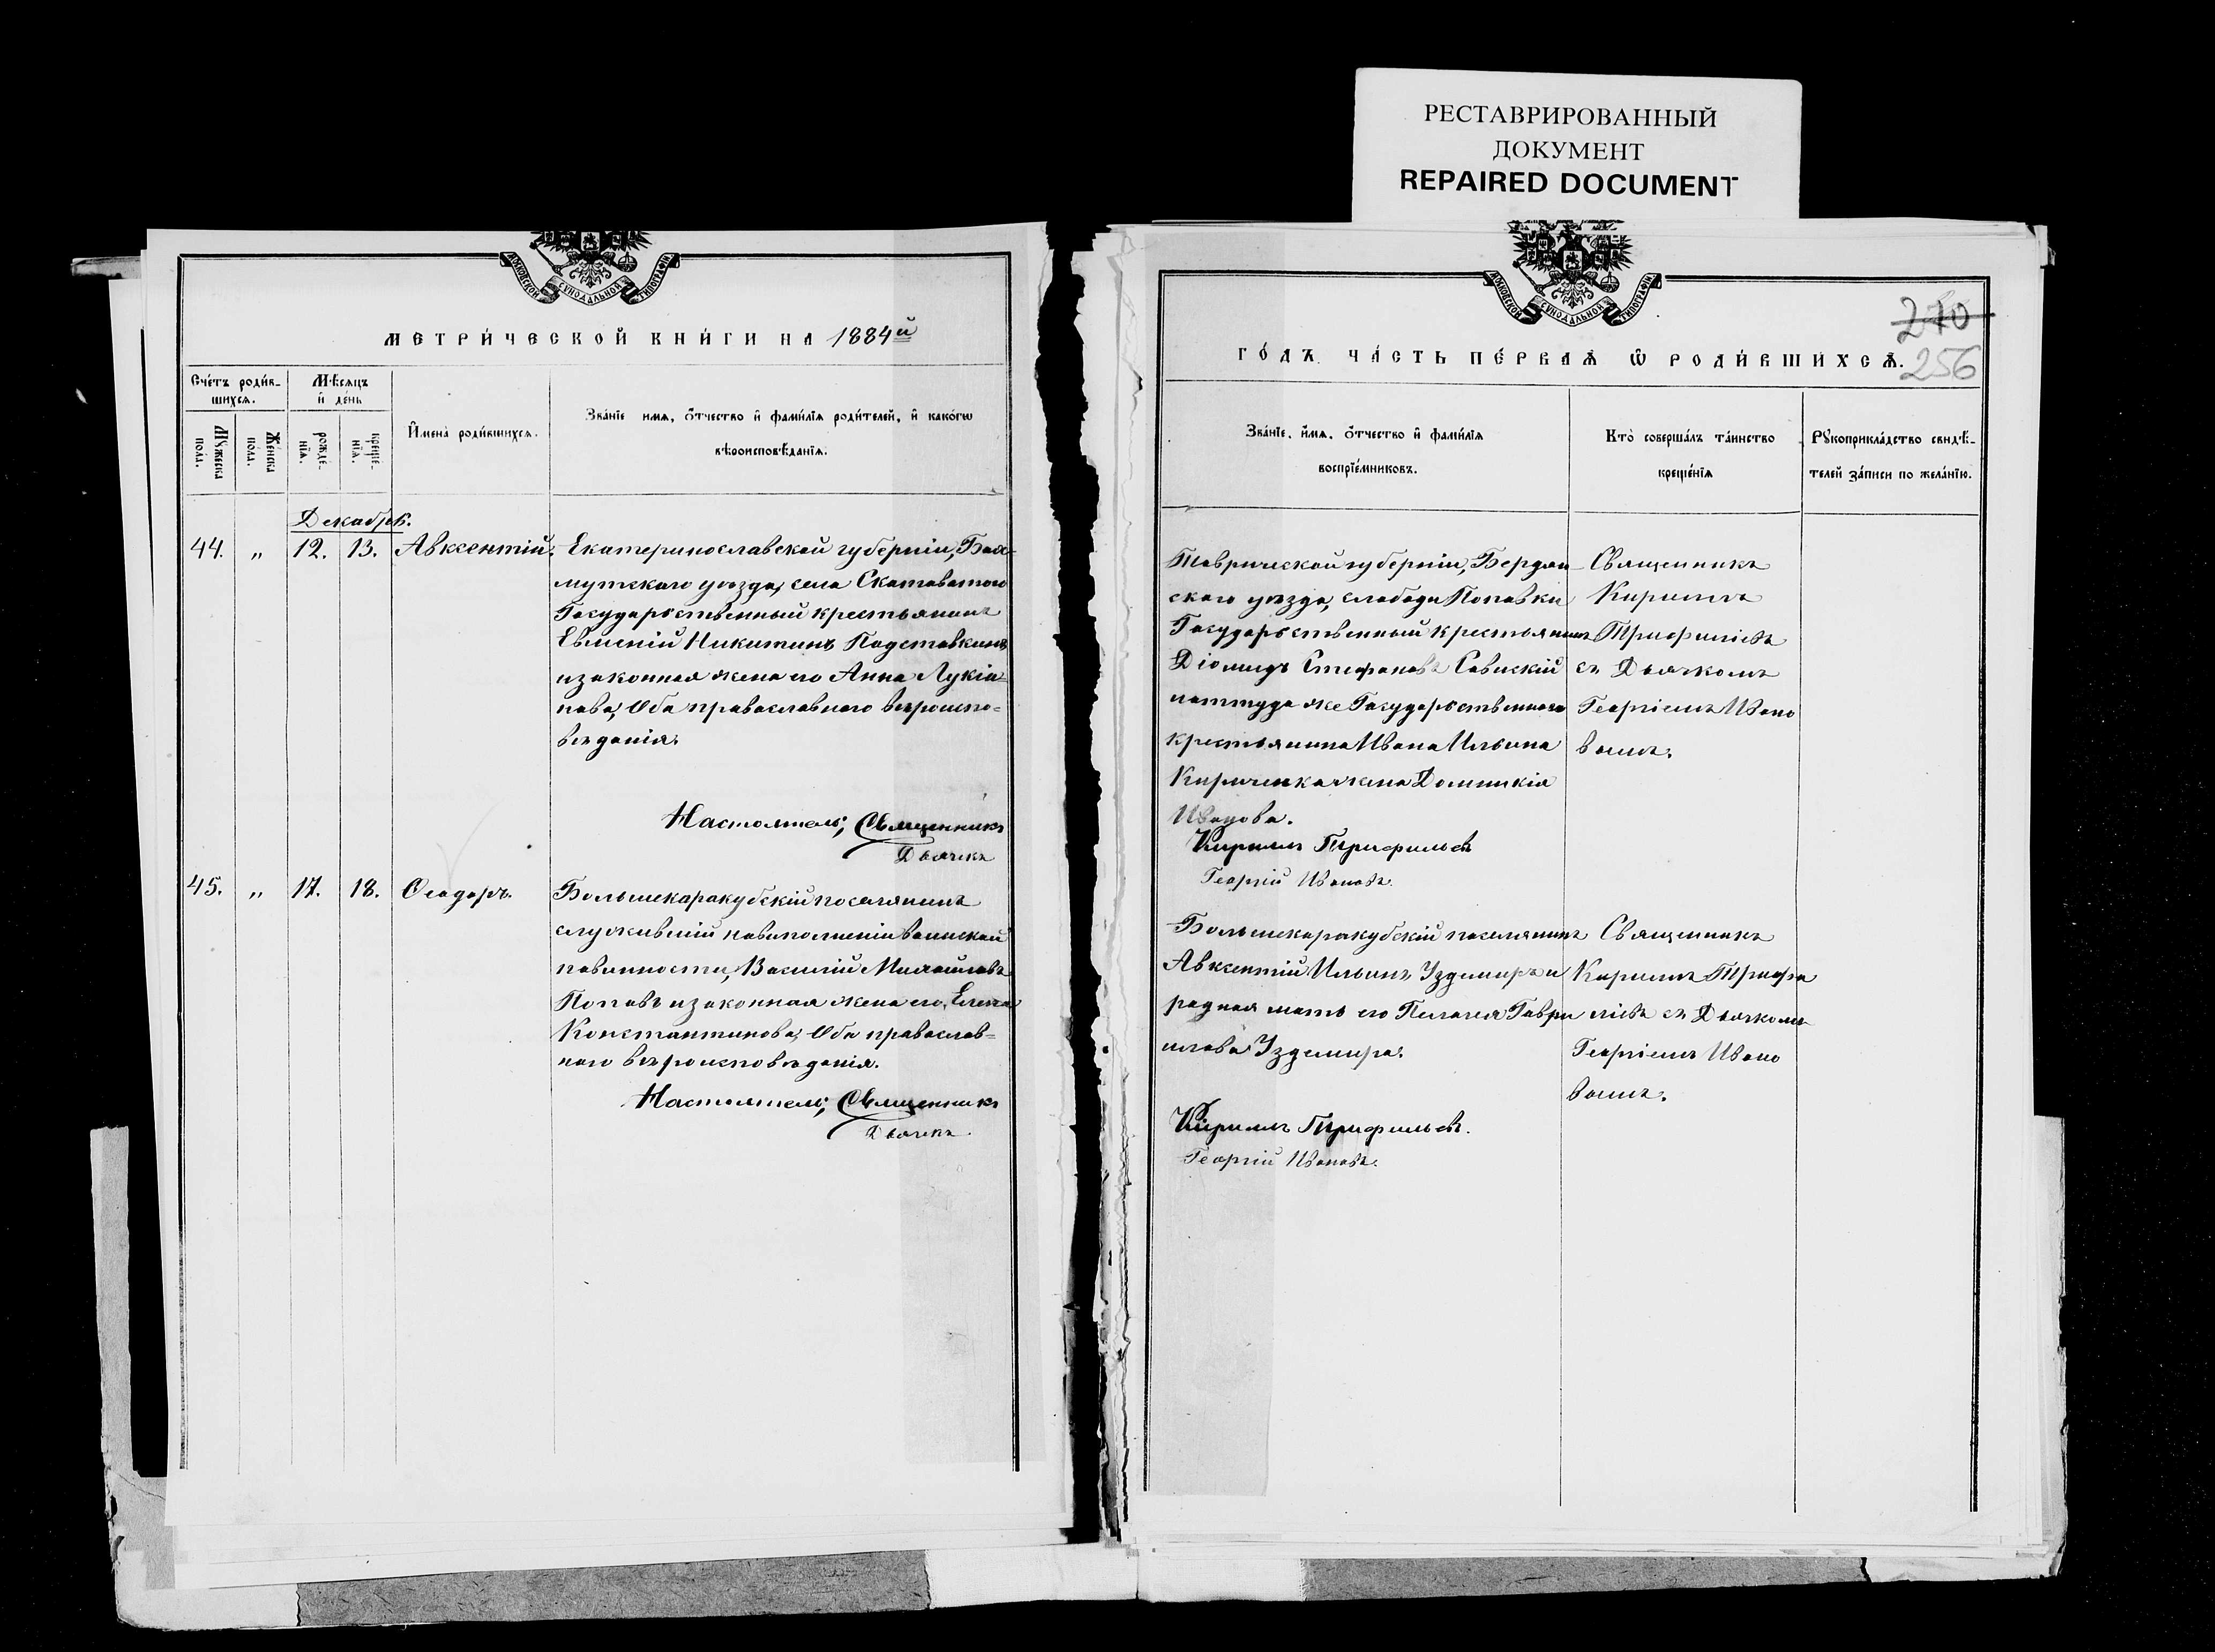 РЕСТАВРИРОВАННЫЙ
ДОКУМЕНТ
REPAIRED DOCUMENT
МОСКОВСКОЙ СѴНОДАЛЬНОЙ ТИПОГРАФІИ
МЕТРИ́ЧЕСКОЙ КНИ́ГИ НА 1884й
Сче́тъ роди́в-
шихся.
Мѣ́сяцъ
и҆ де́нь
Мꙋ́жеска
по́ла.
Же́нска
по́ла.
рожде́-
нїя.
креще́-
нїя.
И҆мена̀ роди́вшихся.
Зва́нїе имя, ѻ҆́тчество и҆ фами́лїя роди́телей, и҆ како́гѡ
вѣроисповѣ́данїя.
Декабрь.
44. „ 12. 13. Авксентій.
Екатеринославской губерніи, Бах-
мутскаго уѣзда, села Скотоватого
Государственный крестьянинъ
Евменій Никитинъ Подставкинъ
и законная жена его Анна Лукіа-
нова, Оба православнаго вѣроиспо-
вѣданія.
Настоятель, Священникъ
Дьячекъ
45. „ 17. 18. Ѳеодоръ.
Большекаракубскій поселянинъ
служившій по выполненіи воинской
повинности, Василій Михайловъ
Поповъ и законная жена его, Елена
Константинова, Оба православ-
наго вѣроисповѣданія.
Настоятель, Священникъ
Дьячекъ
МОСКОВСКОЙ СѴНОДАЛЬНОЙ ТИПОГРАФІИ
270
ГО́ДЪ. ЧА́СТЬ ПЕ́РВАЯ Ѡ҆ РОДИ́ВШИХСЯ.
256
Зва́нїе, и҆́мя, ѻ҆́тчество и҆ фами́лїя
воспрїе́мниковъ.
Кто̀ соверша́лъ та́инство
креще́нїя
Рꙋкоприкла́дство свидѣ́-
телей за́писи по жела́нїю.
Таврической губерніи, Бердян-
скаго уѣзда, слободы Поповки
Государственный крестьянинъ
Діомидъ Стефановъ Савискій
и оттуда же Государственнаго
крестьянина Ивана Ильина
Кириченка жена Домникія
Иванова.
Священникъ
Кириллъ
Трифиліевъ
съ Дьячкомъ
Георгіемъ Ивано
вымъ.
Кириллъ Трифильевъ
Георгій Ивановъ.
Большекаракубскій поселянинъ
Авксентій Ильинъ Уздемиръ и
родная мать его Пелагея Гаври
илова Уздемира.
Священникъ
Кириллъ Трифи
ліевъ съ Дьячкомъ
Георгіемъ Ивано
вымъ.
Кириллъ Трифильевъ.
Георгій Ивановъ.